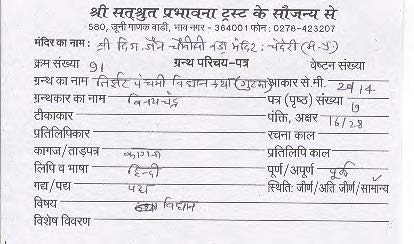 श्री सत्श्रुत प्रभावना ट्रस्ट के सौजन्य से
580, जूनी माणक वाडी, भाव नगर - 364001 फोन : 0278-423207
मंदिर का नाम : श्री दिग. जैन चौबीसी बडा मंदिर : चंदेरी (म-प्र)
क्रम संख्या 91 ग्रन्थ परिचय-पत्र वेष्टन संख्या
ग्रन्थ का नाम निर्झर पंचमी विधान कथा (गुटका) आकार से.मी. 20 14
ग्रन्थकार का नाम विनयचंद्र पत्र (पृष्ठ) संख्या
टीकाकार पंक्ति, अक्षर 16/28
प्रतिलिपिकार रचना काल
कागज/ताड़पत्र कागज प्रतिलिपि काल
लिपि व भाषा हिन्दी पूर्ण/अपूर्ण पूर्ण
गद्य/पद्य पद्य स्थिति: जीर्ण/अति जीर्ण/सामान्य
विषय विधान
विशेष विवरण